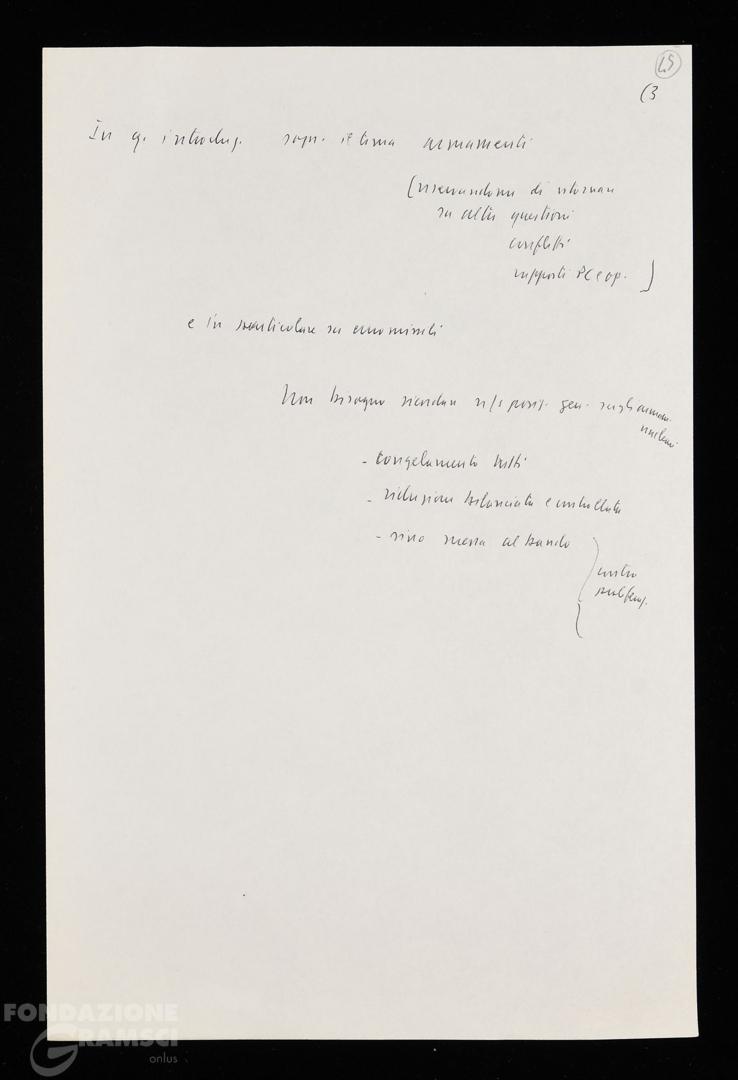 45
(3
In q. introduz. sopr. il tema armamenti
(riservandomi di ritornare
su altre questioni
conflitti
rapporti PC e op. )
e in particolare su euromissili
Non bisogno ricordare n/s posiz. gen. sugli armam.
nucleari
- congelamento tutti
- riduzione bilanciata e controllata
- sino messa al bando
contro
prolifraz.
FONDAZIONE
GRAMSCI
onlus